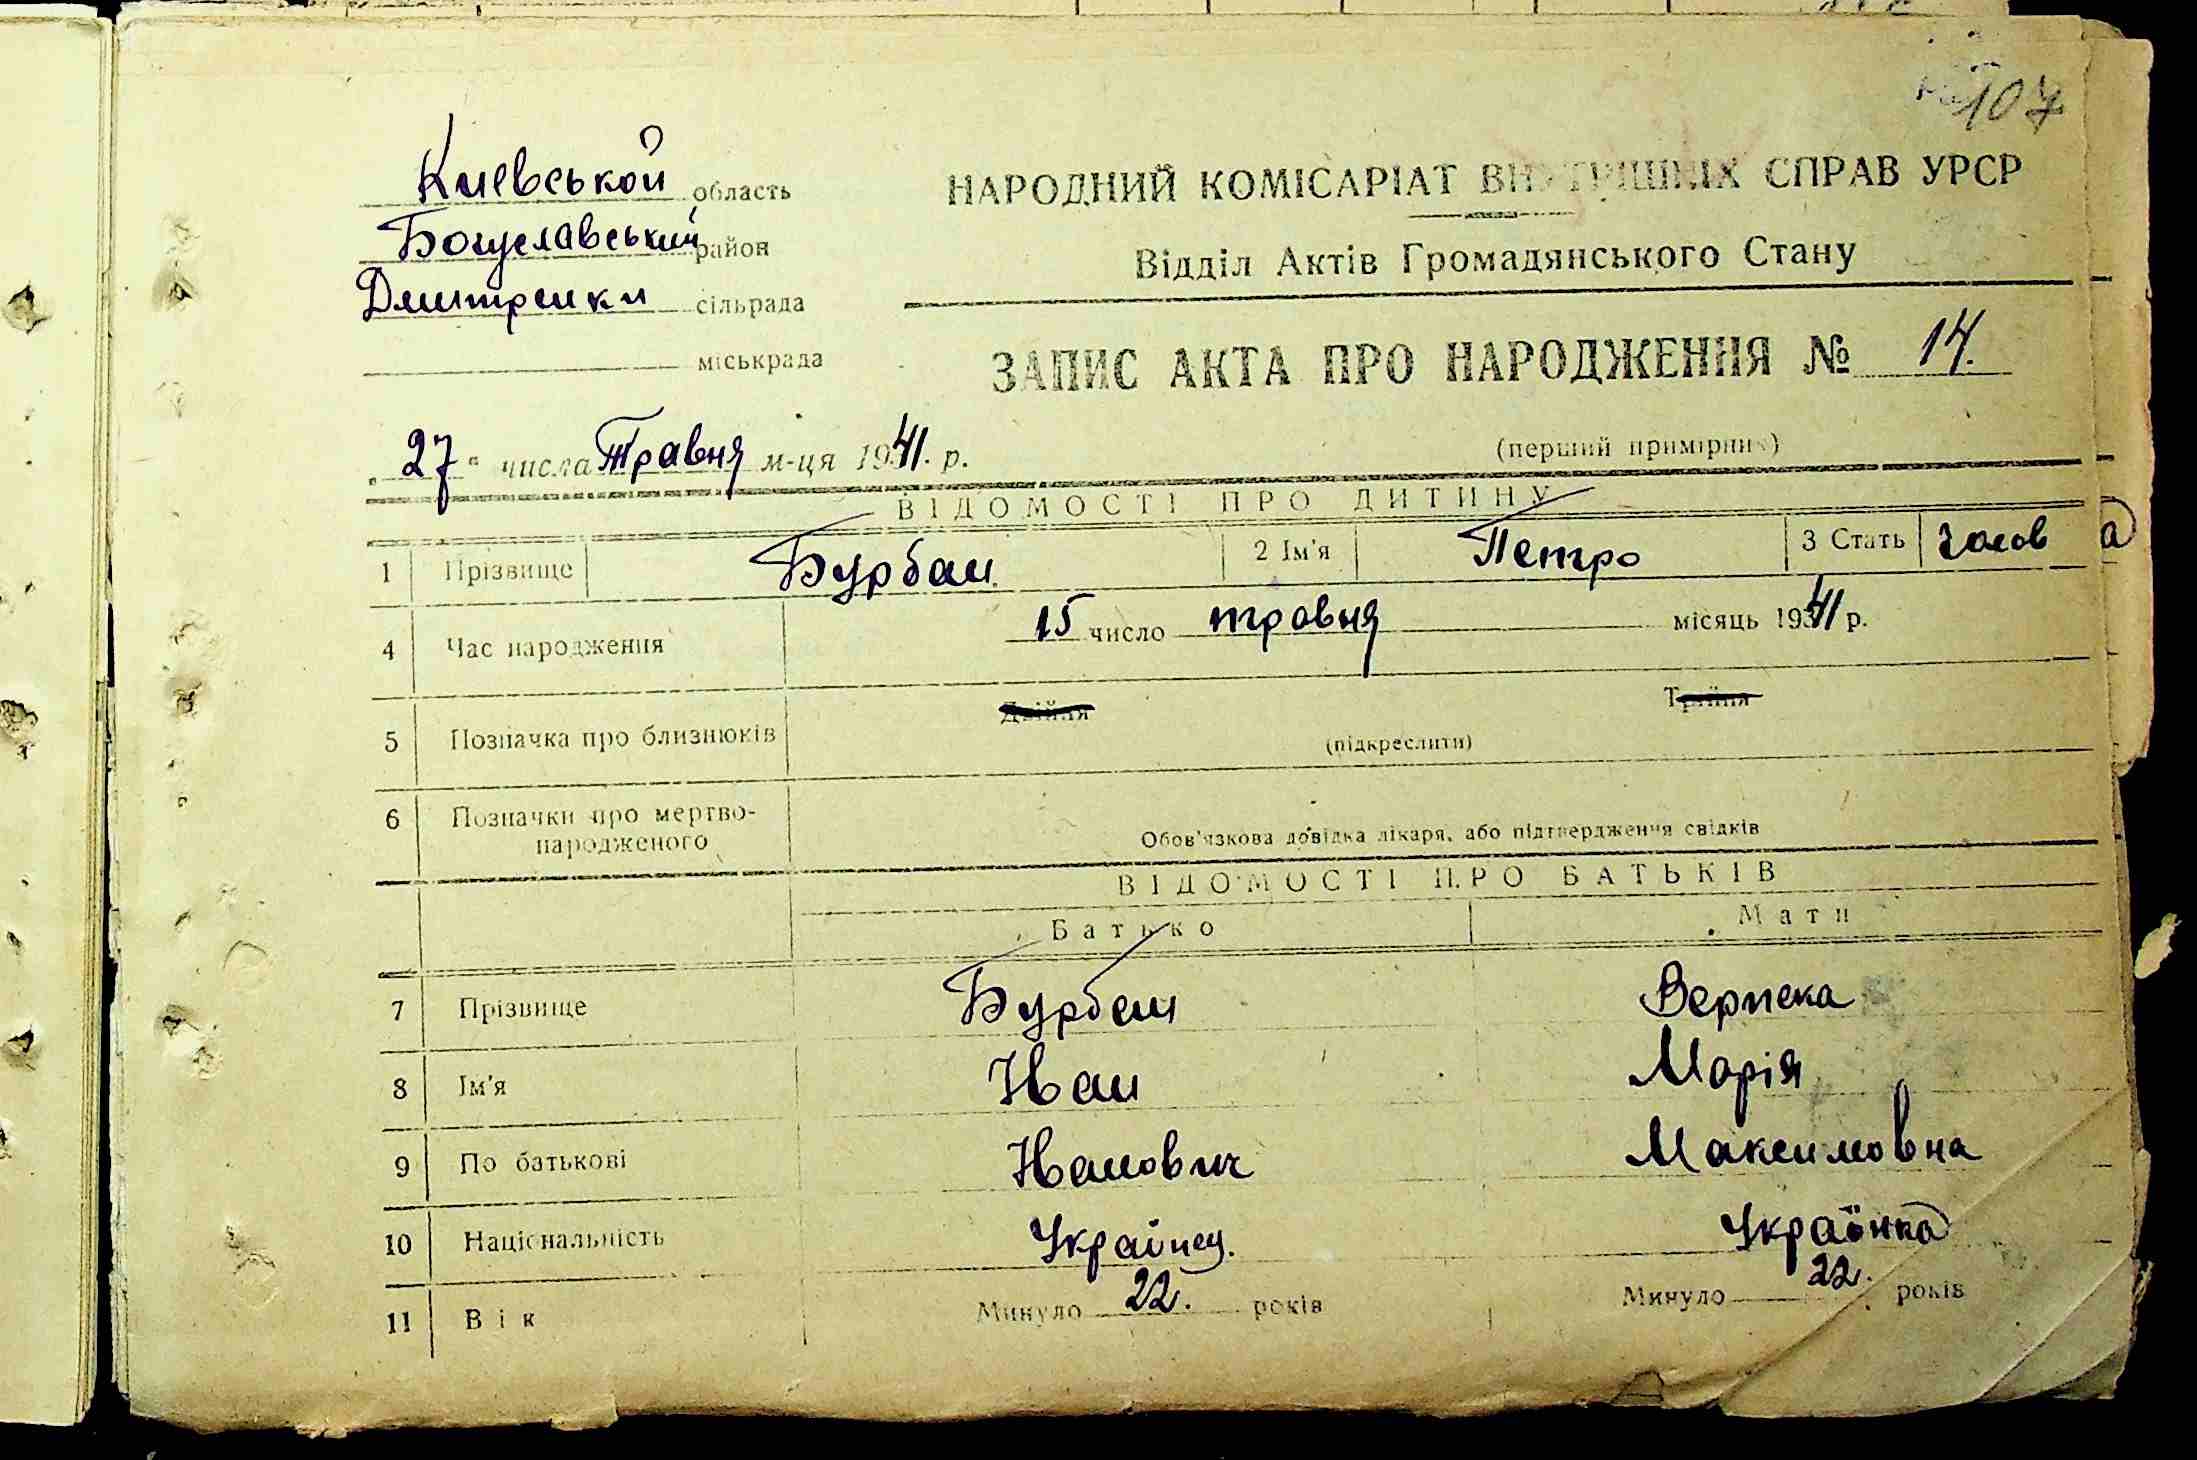 107
Киевськой область
Богуславський район
Дмитренки сільрада
міськрада
НАРОДНИЙ КОМІСАРІАТ ВНУТРІШНІХ СПРАВ УРСР
Відділ Актів Громадянського Стану
ЗАПИС АКТА ПРО НАРОДЖЕННЯ № 14.
„27" числа Травня м-ця 1941. р.
(перший примірник)
ВІДОМОСТІ ПРО ДИТИНУ
1 Прізвище Бурбан 2 Ім'я Петро 3 Стать Чолов
4 Час народження 15 число травня місяць 1941 р.
5 Позначка про близнюків Двійня Трійня
(підкреслити)
6 Позначки про мертво-
народженого
Обов'язкова довідка лікаря, або підтвердження свідків
ВІДОМОСТІ ПРО БАТЬКІВ
Батько Мати
7 Прізвище Бурбан
8 Ім'я Иван Марія
9 По батькові Иванович Максимовна
10 Національність Українец. Українка
11 Вік Минуло 22. років Минуло 22. років